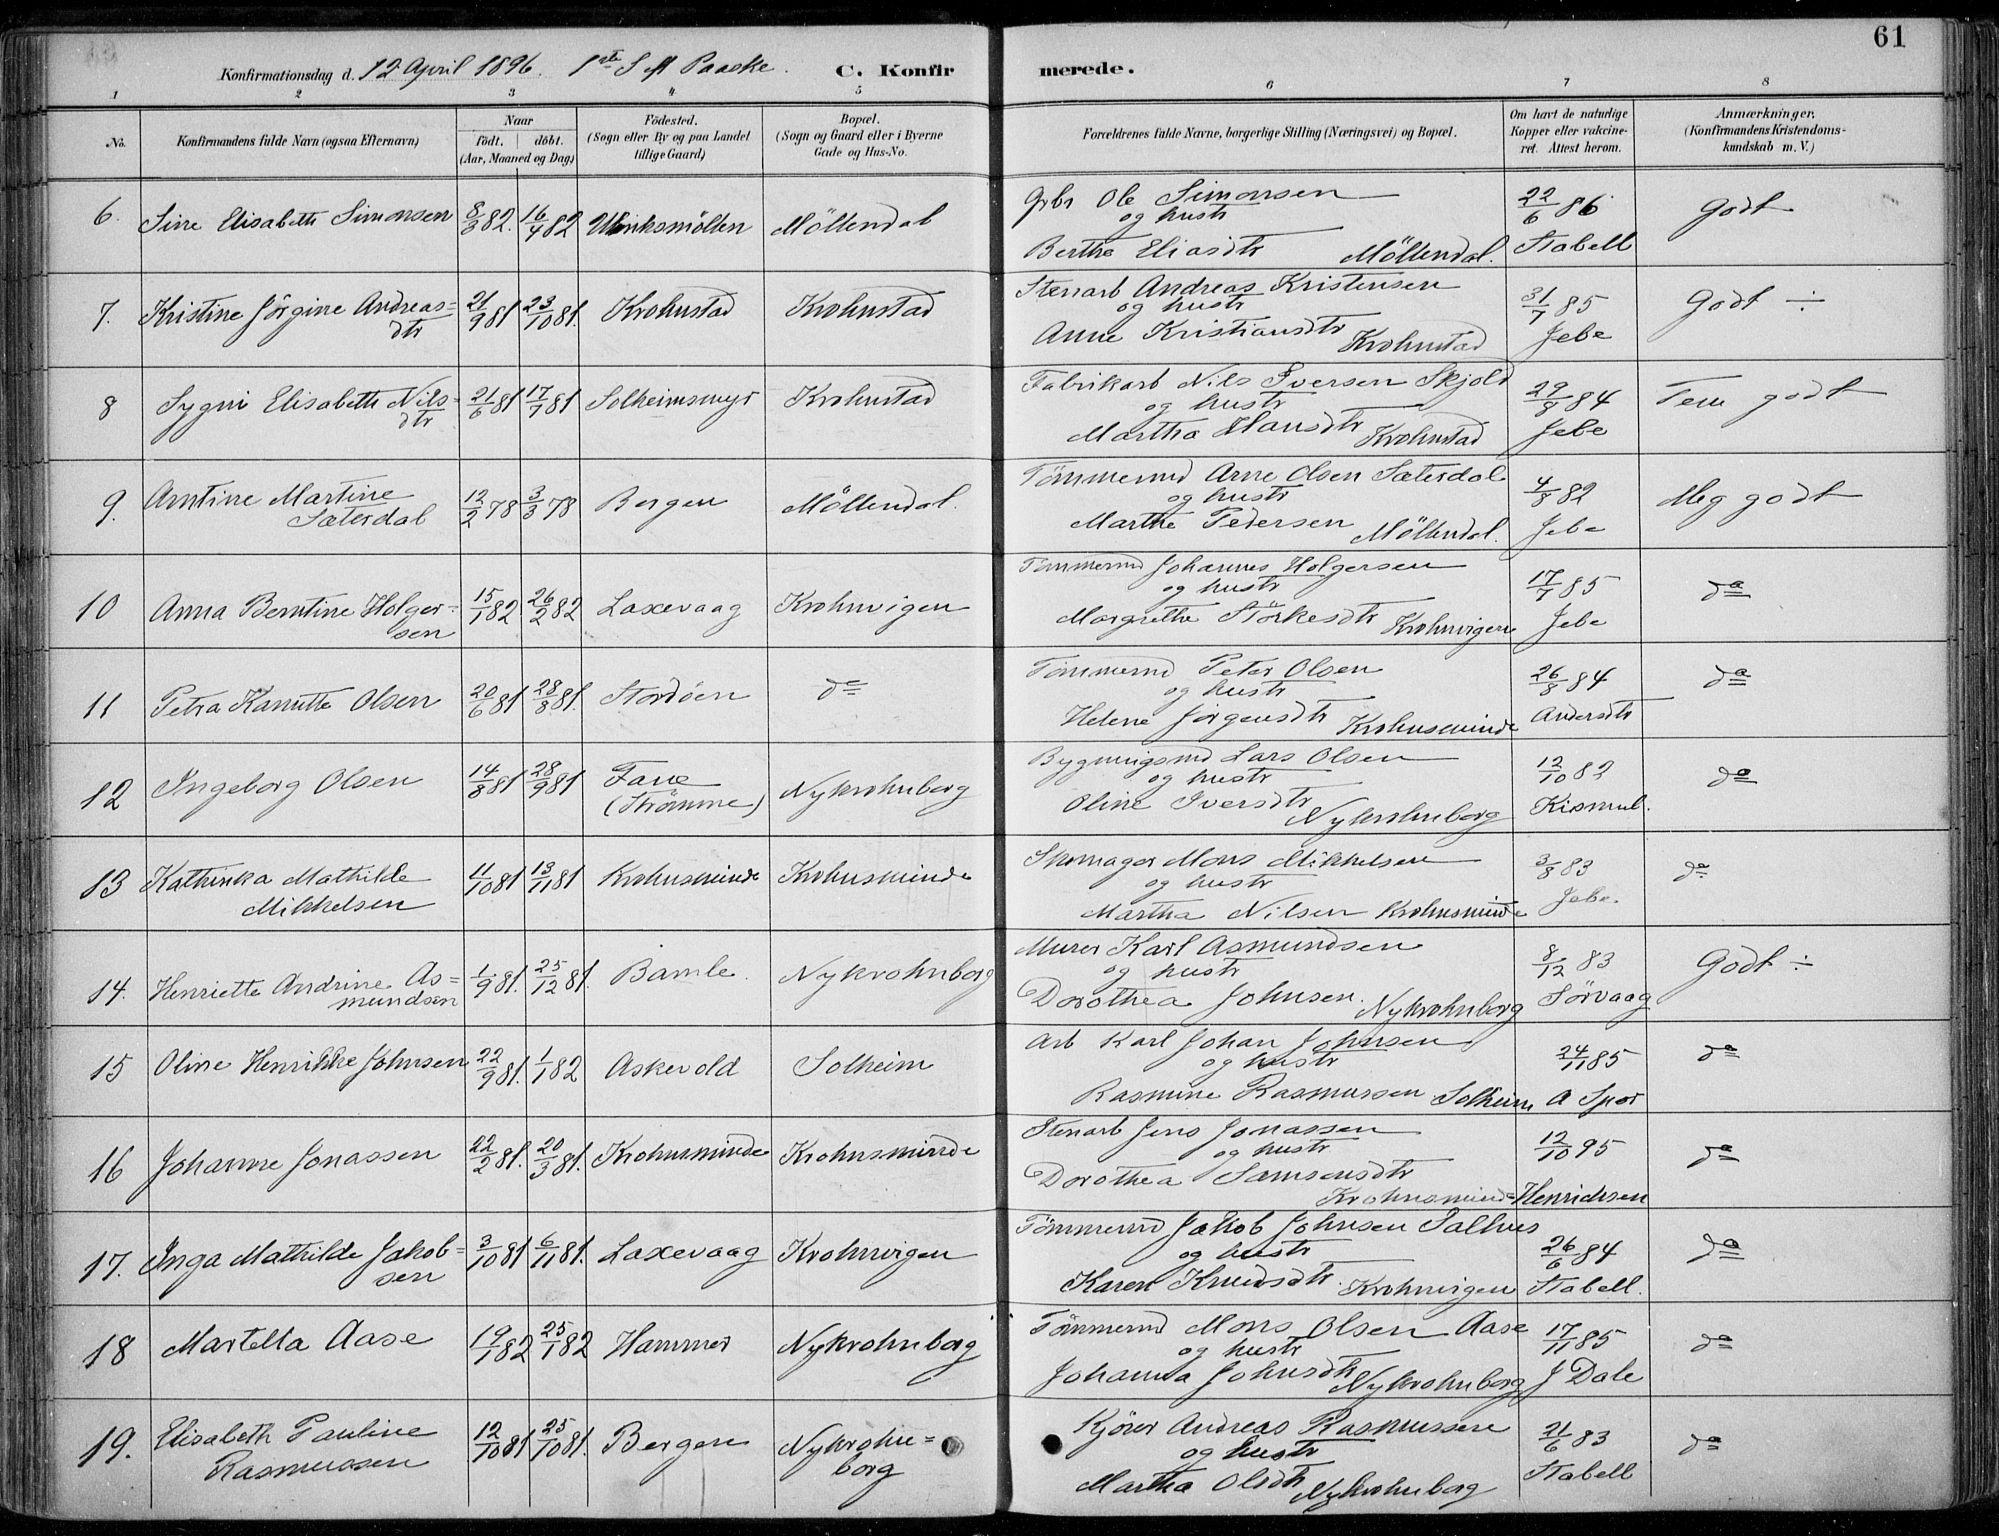 61
Konfirmationsdag d. 12 April 1896. 1ste S. A Paaske. C. Konfirmerede.
1 2 3 4 5 6 7 8
No. Konfirmandens fulde Navn (ogsaa Efternavn) Naar født. døbt. (Aar, Maaned og Dag) Fødested. (Sogn eller By og paa Landet tillige Gaard) Bopæl. (Sogn og Gaard eller i Byerne Gade og Hus-No. Forældrenes fulde Navne, borgerlige Stilling (Næringsvei) og Bopæl. Om havt de naturlige Kopper eller vakcineret. Attest herom. Anmærkninger. (Konfirmandens Kristendomskundskab m. V.)
6. Sine Elisabeth Simonsen 8/3 82. 16/4 82 Møllendal Grbr Ole Simonsen 22/6 86 Godt
og hustr
Berthe Eliasdtr Møllendal. Stabell
7. Kristine Jørgine Andreas= 21/9 81 23/10 81. Krohnstad Krohnstad Stenarb Andreas Kristensen 31/7 85 Godt ÷
dtr og hustr
Anne Kristiansdtr Krohnstad Jebe
8 Sygni Elisabeth Nils= 21/6 81 17/7 81 Solheimsmyr Krohnstad Fabrikarb Nils Iversen Skjold 29/9 84 Tem godt
dtr og hustr
Martha Hansdtr Krohnstad Jebe
9. Arntine Martine 12/2 78 3/3 78 Bergen Møllendal. Tømmermd Arne Olsen Sætersdal 4/8 82 Meg godt
Sætersdal og hustr
Marthe Pedersen Møllendal. Jebe
10 Anna Berntine Holger= 15/1 82 26/2 82 Laxevaag Krohnvigen Tømmermd Johannes Holgersen 17/7 85 da
sen og hustr
Margrethe Størkesdtr Krohnvigen Jebe
11 Petra Kanutte Olsen 20/6 81 28/8 81. Stordøen do Tømmermd Peter Olsen 26/8 84 da
og hustr
Helene Jørgensdtr Krohnsminde Andersdtr
12 Ingeborg Olsen 14/8 81 28/9 81 Fane Nykrohnborg Bygningsmd Lars Olsen 12/10 82 do
(Strømme) og hustr
Oline Iversdtr Nykrohnborg Kismul.
13 Kathinka Mathilde 11/10 81 13/11 81 Krohnsminde Krohnsminde Skomager Mons Mikkelsen 3/8 83 da
Mikkelsen og hustr
Martha Nilsen Krohnsminde Jebe.
14. Henriette Andrine As= 1/9 81. 25/12 81. Bamle. Nykrohnborg Murer Karl Asmundsen 8/12 83 Godt ÷
mundsen og hustr
Dorothea Johnsen. Nykrohnborg Sørvaag
15 Oline Henrikke Johnsen 22/9 81. 1/1 82 Askevold Solheim Arb Karl Johan Johnsen 24/11 85 da
og hustr
Rasmine Rasmussen Solheim A Spor
16 Johanne Jonassen 22/2 81. 20/3 81. Krohnsminde Krohnsminde Stenarb Jens Jonassen 12/10 95 da
og hustr
Dorothea Samsonsdtr
Krohnsmind= Henrichsen
17. Inga Mathilde Jakob= 3/10 81 6/11 81. Laxevaag Krohnvigen Tømmermd Jakob Johnsen Salhus 26/6 84 da
sen og hustr
Karen Knudsdtr. Krohnvigen Stabell.
18 Martella Aase 19/1 82 25/1 82 Hammer Nykrohnborg Tømmermd Mons Olsen Aase 17/11 85 da
og hustr
Johanna Johnsdtr Nykrohnborg J Dale
19. Elisabeth Pauline 12/10 81 25/10 81. Bergen Nykrohn= Kjører Andreas Rasmussen 21/6 83 da
Rasmussen borg og hustr
Martha Olsdtr Nykrohnborg Stabell